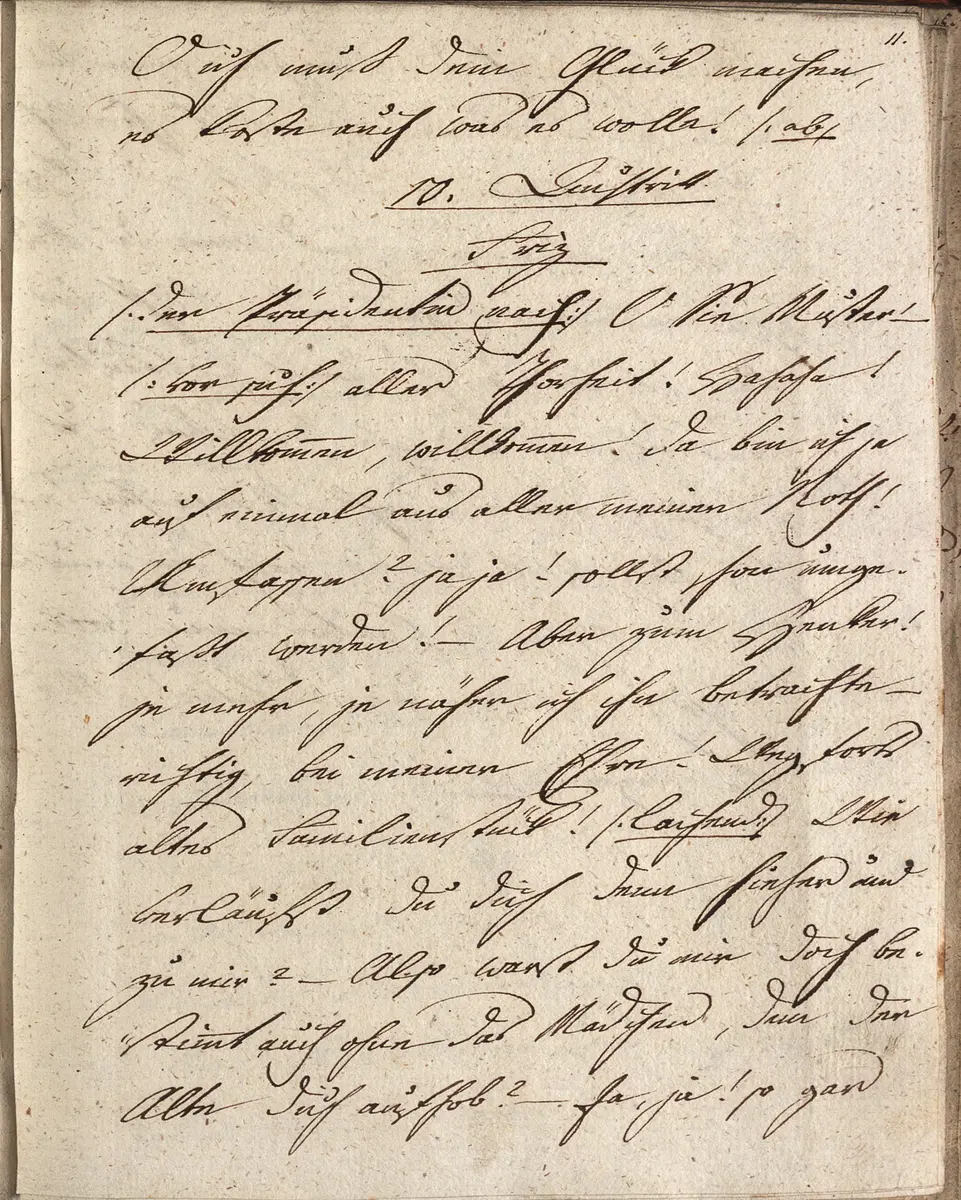 11.
Ich muß dein Glück machen,
es koste auch was es wolle! /: ab /
10. Auftritt
Friz
/: der Präsidentin nach :/ O Sie Muster! —
/: vor sich :/ aller Thorheit! Hahaha!
Willkom̅en, willkom̅en! da bin ich ja
auf einmal aus aller meiner Noth!
Umfassen? ja ja! sollst schon umge-
faßt werden! — Aber zum Henker!
je mehr, je näher ich ihn betrachte —
richtig, bei meiner Ehre! Weg, fort
altes Familienstück! /: lachend :/ Wie
verläufst du dich denn hieher und
zu mir? — Also warst du mir doch be-
stim̅t auch ohne das Mädchen, dem der
Alte dich aufhob? — Ja, ja! so gar